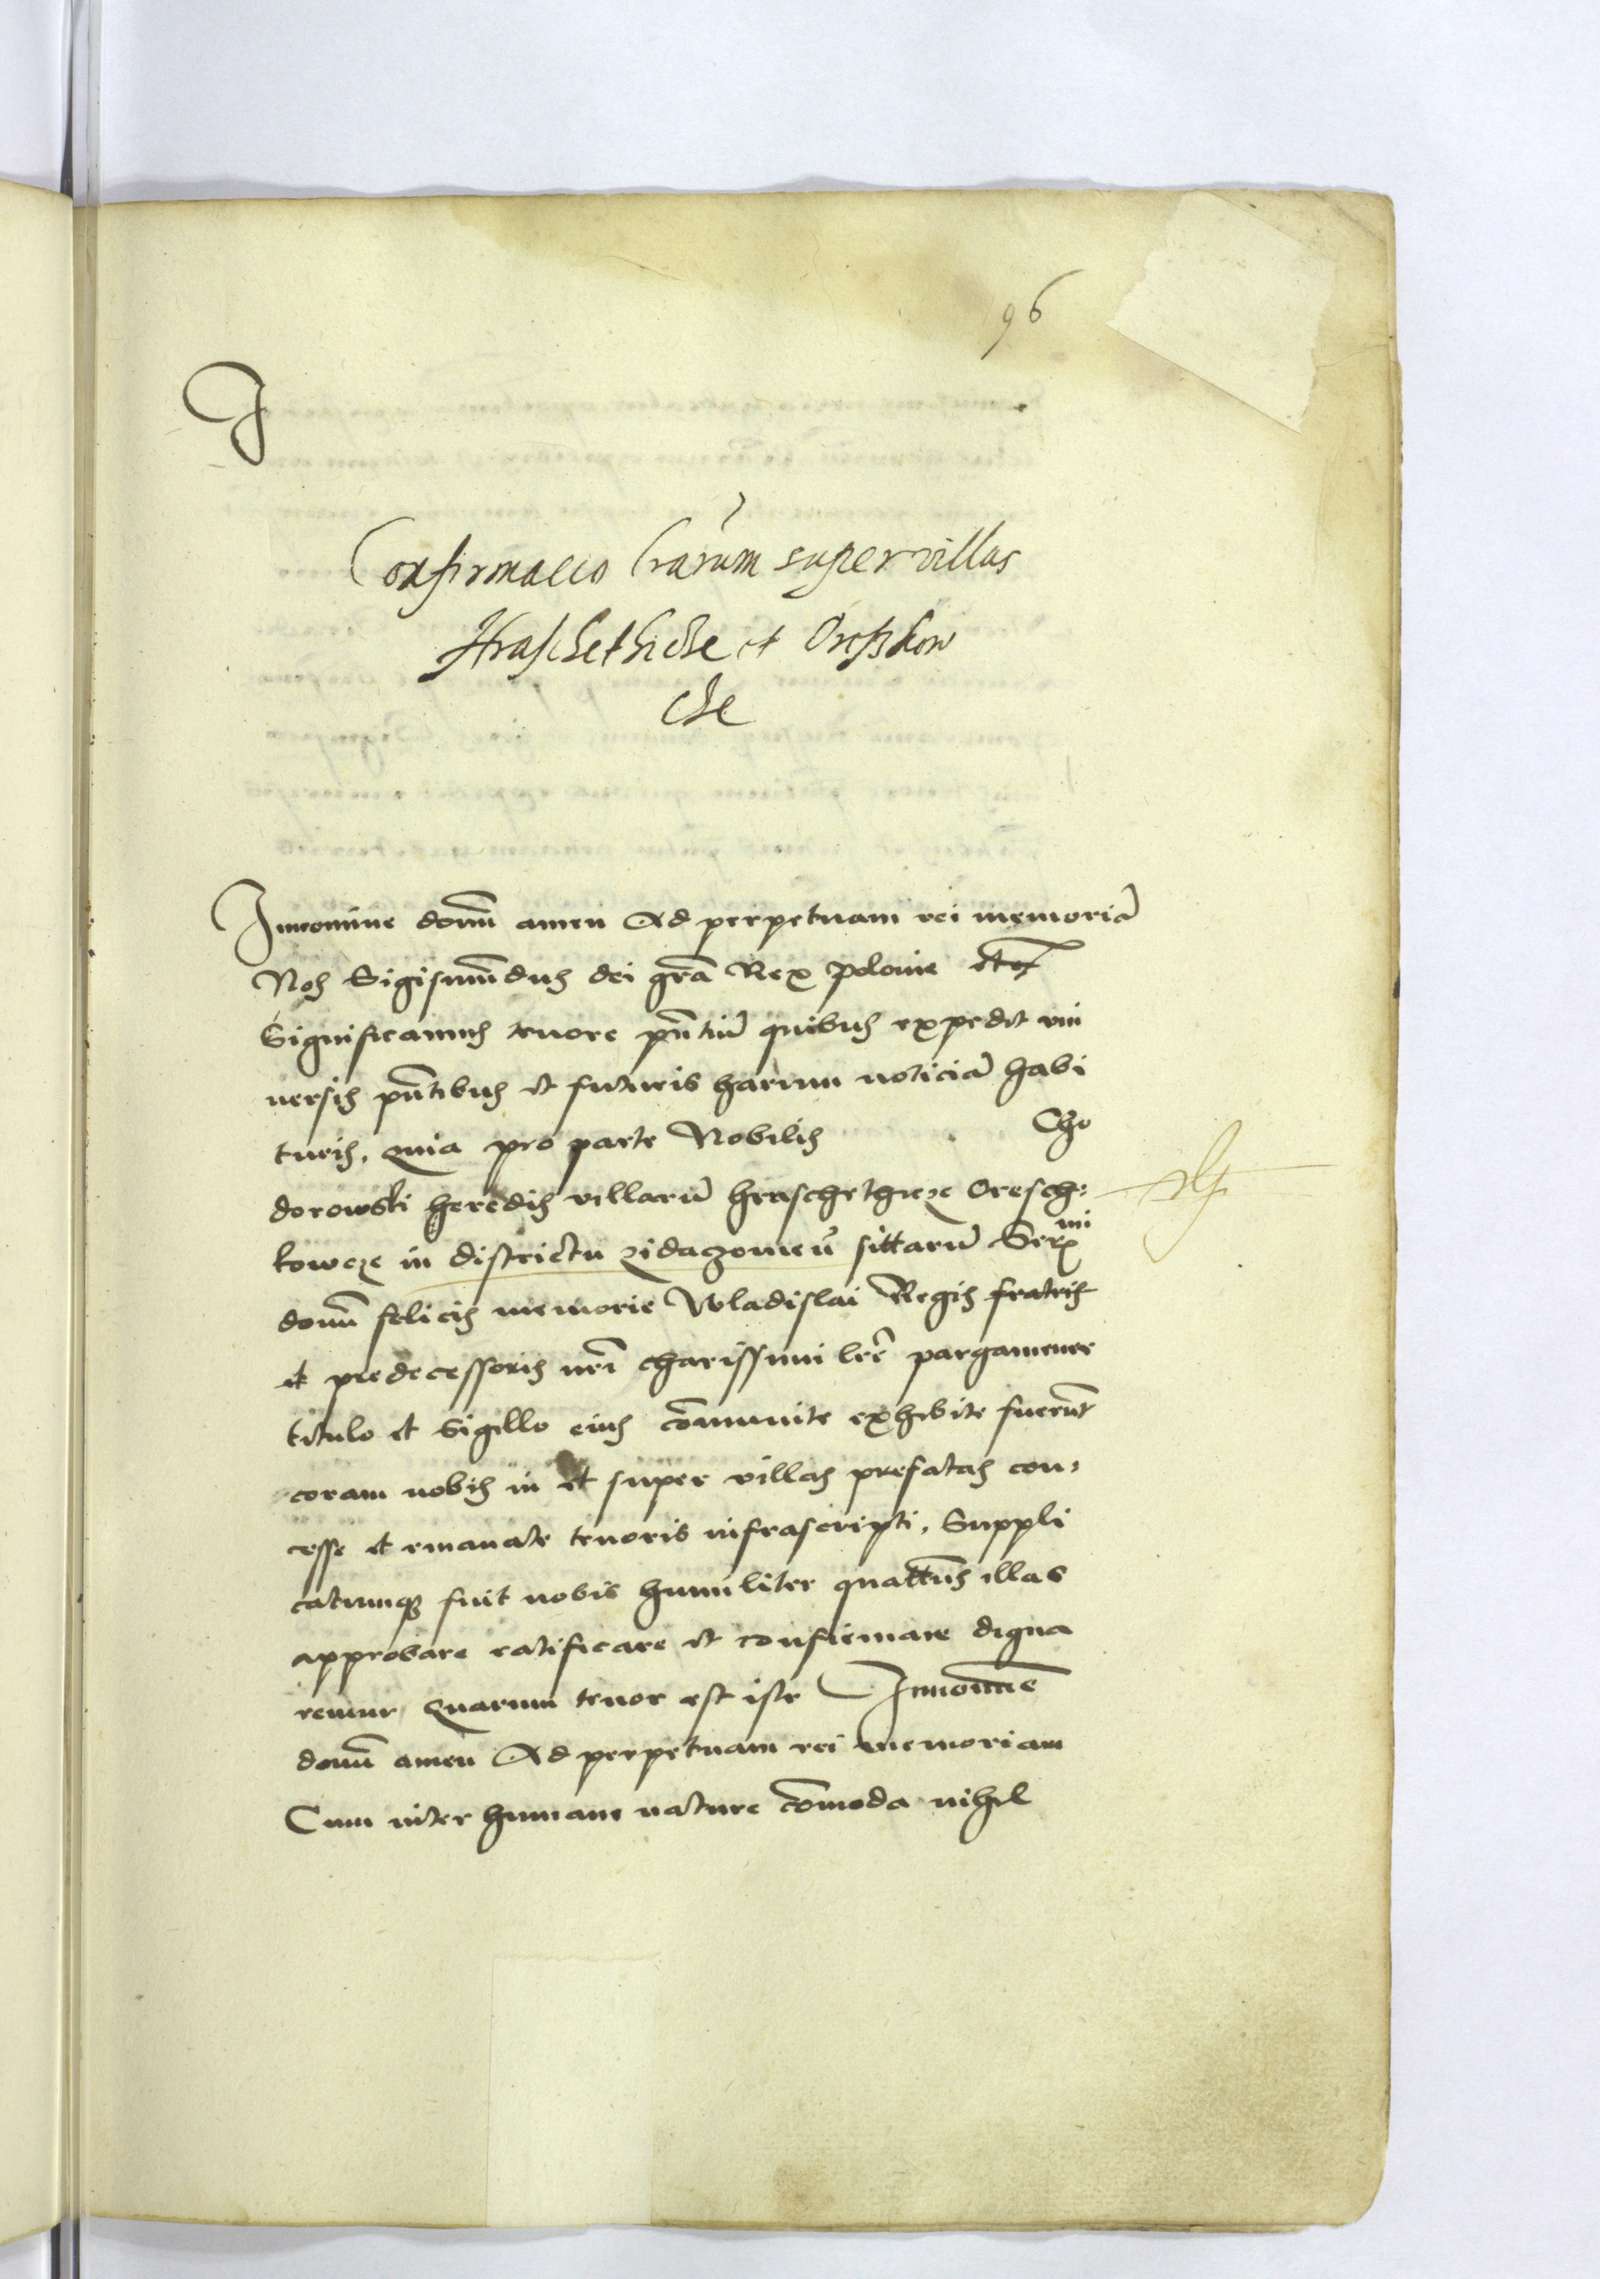 96
J
Confirmacio lrarum super villas
Hraschethicze et Oreschkow
cze
In nomine domi amen Ad perpetuam rei memoria
Nos Sigismundus dei gra Rex polonie etc
Significamus tenore pntiu quibus expedit uni
versis pntibus et futuris harum noticia habi
turis, quia pro parte Nobilis Cho
dorowski heredis villaru hraschethicze Oresch:
kowcze in districtu zidaczomen sittaru Ser mi
domi felicis memorie Wladislai Regis fratris
et predecessoris nri charissimi lre pargamenee
titulo et Sigillo eius comunite exhibite fuerut
coram nobis in et super villas prefatas con:
cesse et emanate tenoris infrascripti, Suppli
catumq fuit nobis humiliter quattus illas
approbare ratificare et confirmare digna
remur, quarum tenor est iste In nomine
domi amen Ad perpetuam rei memoriam
Cum inter humane nature comoda nihil